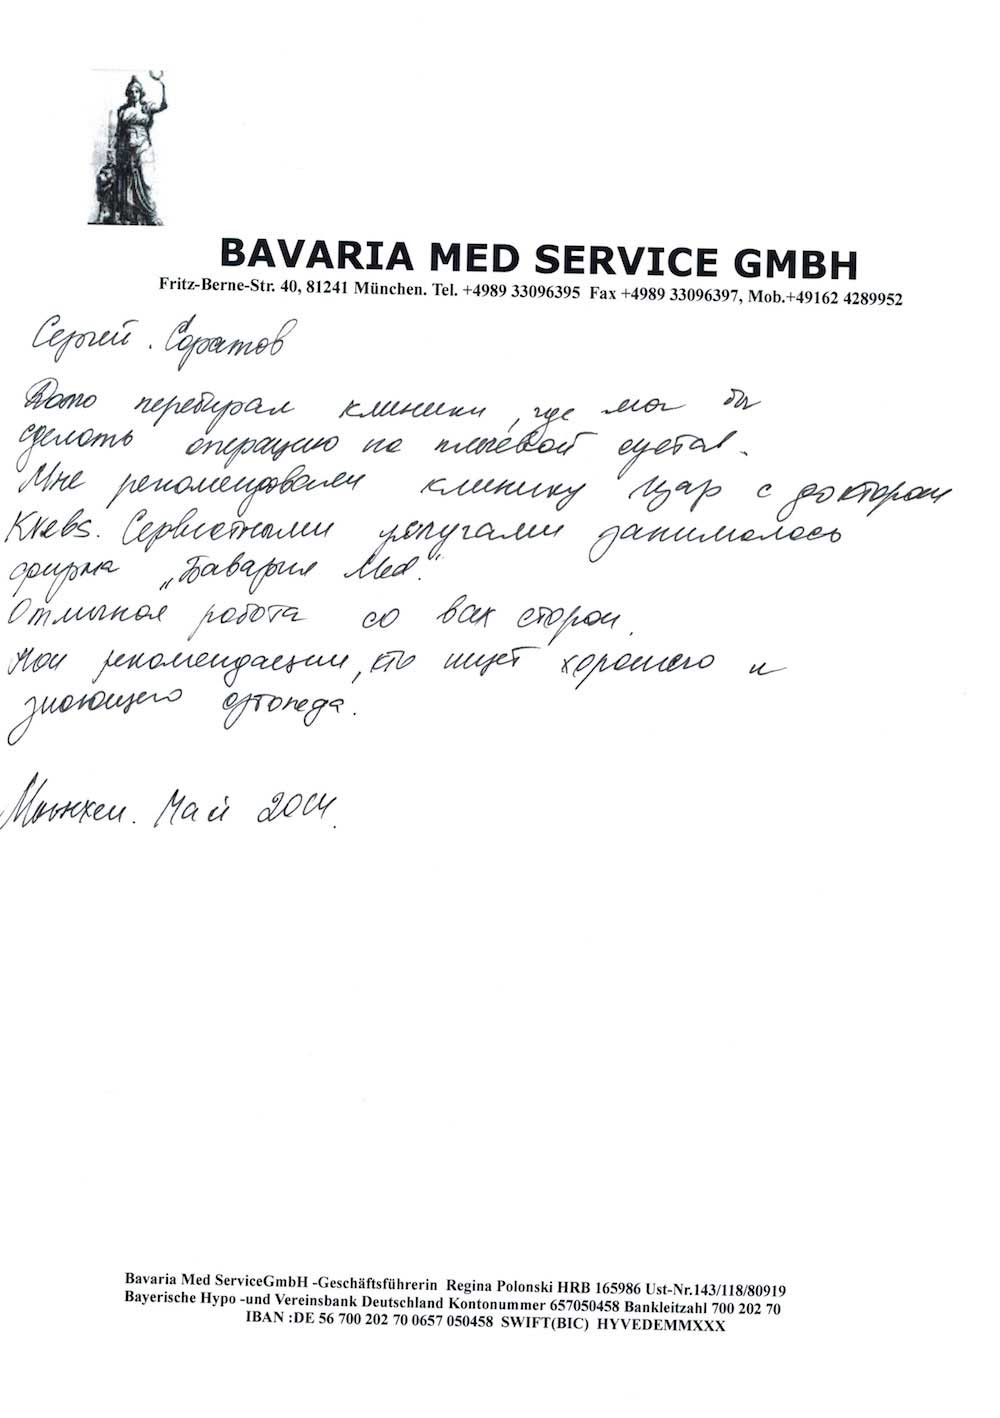 BAVARIA MED SERVICE GMBH
Fritz-Berne-Str. 40, 81241 München. Tel. +4989 33096395 Fax +4989 33096397, Mob.+49162 4289952
Сергей. Саратов
Долго перебирал клиники, где мог бы
сделать операцию на плечевой сустав.
Мне рекомендовали клинику Изар с доктором
Krebs. Сервисными услугами занималась
фирма „Бавария Med."
Отличная работа со всех сторон.
Мои рекомендации, кто ищет хорошего и
знающего ортопеда.
Мюнхен. Май 2014.
Bavaria Med ServiceGmbH -Geschäftsführerin Regina Polonski HRB 165986 Ust-Nr.143/118/80919
Bayerische Hypo -und Vereinsbank Deutschland Kontonummer 657050458 Bankleitzahl 700 202 70
IBAN :DE 56 700 202 70 0657 050458 SWIFT(BIC) HYVEDEMMXXX